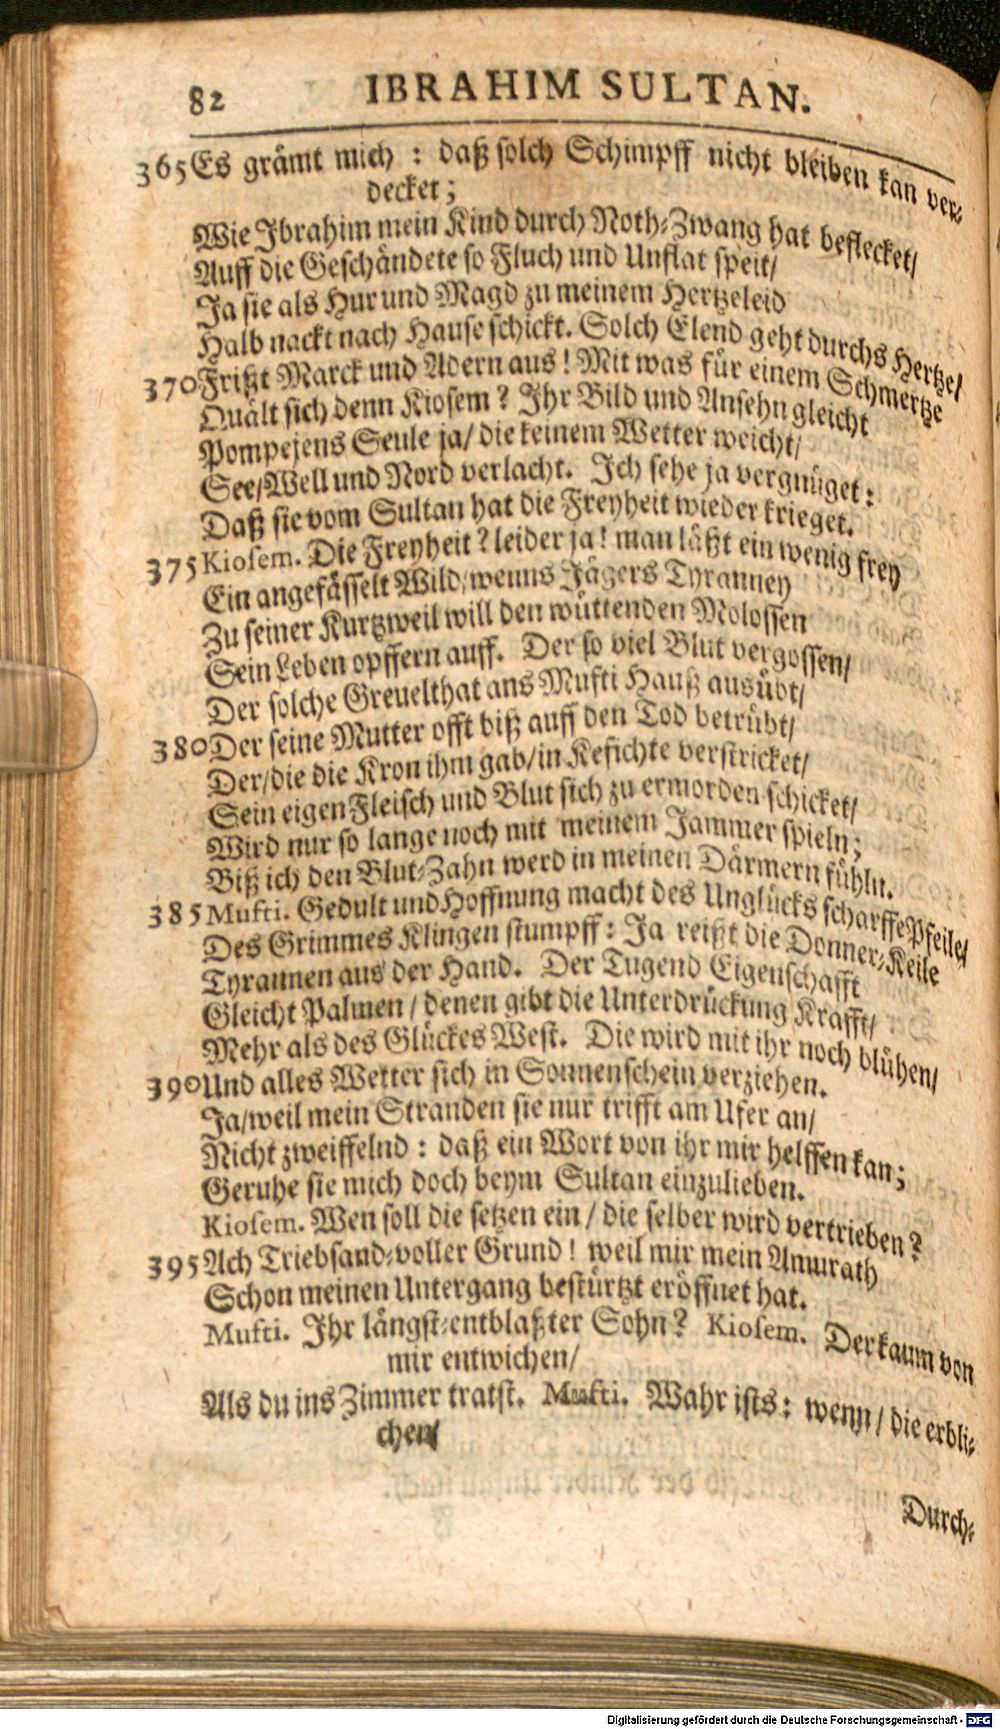 82 IBRAHIM SULTAN.
365 Es grämt mich : daß solch Schimpff nicht bleiben kan ver-
decket;
Wie Ibrahim mein Kind durch Noth-Zwang hat beflecket/
Auff die Geschändete so Fluch und Unflat speit/
Ja sie als Hur und Magd zu meinem Hertzeleid
Halb nackt nach Hause schickt. Solch Elend geht durchs Hertze/
370 Frißt Marck und Adern aus! Mit was für einem Schmertze
Quält sich denn Kiosem? Ihr Bild und Ansehn gleicht
Pompejens Seule ja/ die keinem Wetter weicht/
See/Well und Nord verlacht. Ich sehe ja vergnüget:
Daß sie vom Sultan hat die Freyheit wieder krieget.
375 Kiosem. Die Freyheit? leider ja! man läßt ein wenig frey
Ein angefässelt Wild/wenns Jägers Tyranney
Zu seiner Kurtzweil will den wüttenden Molossen
Sein Leben opffern auff. Der so viel Blut vergossen/
Der solche Greuelthat ans Mufti Hauß ausübt/
380 Der seine Mutter offt biß auff den Tod betrübt/
Der/die die Kron ihm gab/in Kefichte verstricket/
Sein eigen Fleisch und Blut sich zu ermorden schicket/
Wird nur so lange noch mit meinem Jammer spieln;
Biß ich den Blut-Zahn werd in meinen Därmern fühln.
385 Mufti. Gedult und Hoffnung macht des Unglücks scharffe Pfeile/
Des Grimmes Klingen stumpff: Ja reißt die Donner-Keile
Tyrannen aus der Hand. Der Tugend Eigenschafft
Gleicht Palmen / denen gibt die Unterdrückung Krafft/
Mehr als des Glückes West. Die wird mit ihr noch blühen/
390 Und alles Wetter sich in Sonnenschein verziehen.
Ja/weil mein Stranden sie nur trifft am Ufer an/
Nicht zweiffelnd : daß ein Wort von ihr mir helffen kan;
Geruhe sie mich doch beym Sultan einzulieben.
Kiosem. Wen soll die setzen ein / die selber wird vertrieben?
395 Ach Triebsand-voller Grund! weil mir mein Amurath
Schon meinen Untergang bestürtzt eröffnet hat.
Mufti. Ihr längst-entblaßter Sohn? Kiosem. Der kaum von
mir entwichen/
Als du ins Zimmer tratst. Mufti. Wahr ists: wenn / die erbli-
chen/
Durch-
Digitalisierung gefördert durch die Deutsche Forschungsgemeinschaft - DFG